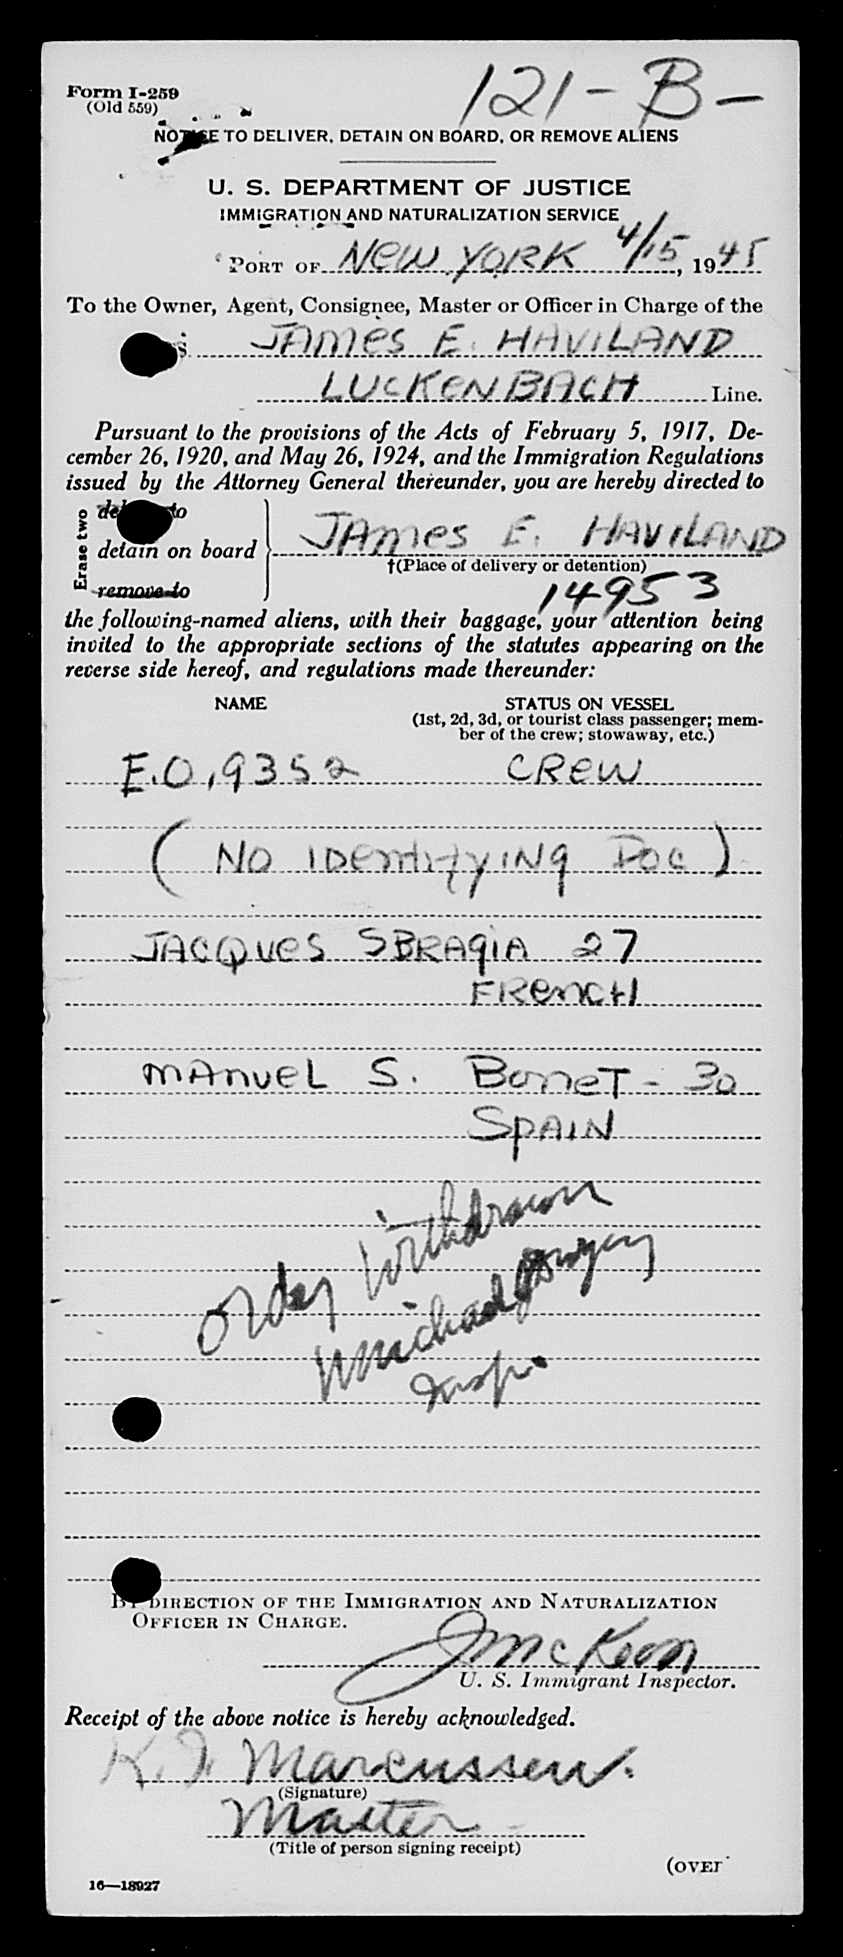 Form I-259
(Old 559)
121-B-
NOTICE TO DELIVER, DETAIN ON BOARD, OR REMOVE ALIENS
U. S. DEPARTMENT OF JUSTICE
IMMIGRATION AND NATURALIZATION SERVICE
PORT OF NEW YORK 4/15, 1945
To the Owner, Agent, Consignee, Master or Officer in Charge of the
JAMES E. HAVILAND
LUCKENBACH Line.
Pursuant to the provisions of the Acts of February 5, 1917, De-
cember 26, 1920, and May 26, 1924, and the Immigration Regulations
issued by the Attorney General thereunder, you are hereby directed to
Erase two
to
detain on board
remove to
JAMES E. HAVILAND
†(Place of delivery or detention)
14953
the following-named aliens, with their baggage, your attention being
invited to the appropriate sections of the statutes appearing on the
reverse side hereof, and regulations made thereunder:
NAME STATUS ON VESSEL
(1st, 2d, 3d, or tourist class passenger; mem-
ber of the crew; stowaway, etc.)
E.O. 9352 CREW
( NO IDENTIFYING DOC )
JACQUES SBRAGIA 27
FRENCH
MANUEL S. BONET - 30
SPAIN
Order Withdrawn
Michael
Insp.
BY DIRECTION OF THE IMMIGRATION AND NATURALIZATION
OFFICER IN CHARGE.
J McKeon
U. S. Immigrant Inspector.
Receipt of the above notice is hereby acknowledged.
K. J. Marcussen.
(Signature)
Master
(Title of person signing receipt)
(OVER
16—18927